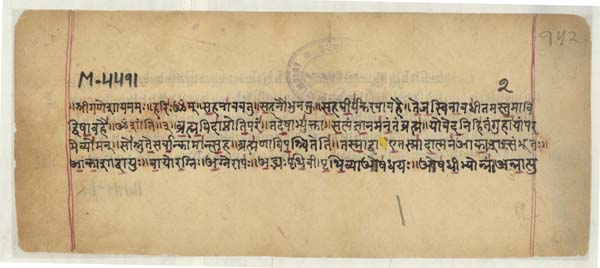 १५२
M-4491
२
॥श्रीगणेशायनमः॥हरिःॐम्॥सहनाववतु॥सहनौभुनक्तु॥सहवीर्यंकरवावहै॥तेजस्विनावधीतमस्तुमावि
द्विषावहै॥ॐशांतिः॥३॥ब्रह्मविदाप्नोतिपरं॥तदेषाभ्युक्ता॥सत्यंज्ञानमनंतंब्रह्म॥योवेदनिहितंगुहायांपर
मेव्योमन्॥सोश्नुतेसर्वान्कामान्सह॥ब्रह्मणाविपश्चितेति॥तस्माद्वाएतस्मादात्मनआकाशःसंभूतः॥
आकाशाद्वायुः॥वायोरग्निः॥अग्नेरापः॥अद्भ्यःपृथिवी॥पृथिव्याओषधयः॥ओषधीभ्योन्नं॥अन्नात्पु